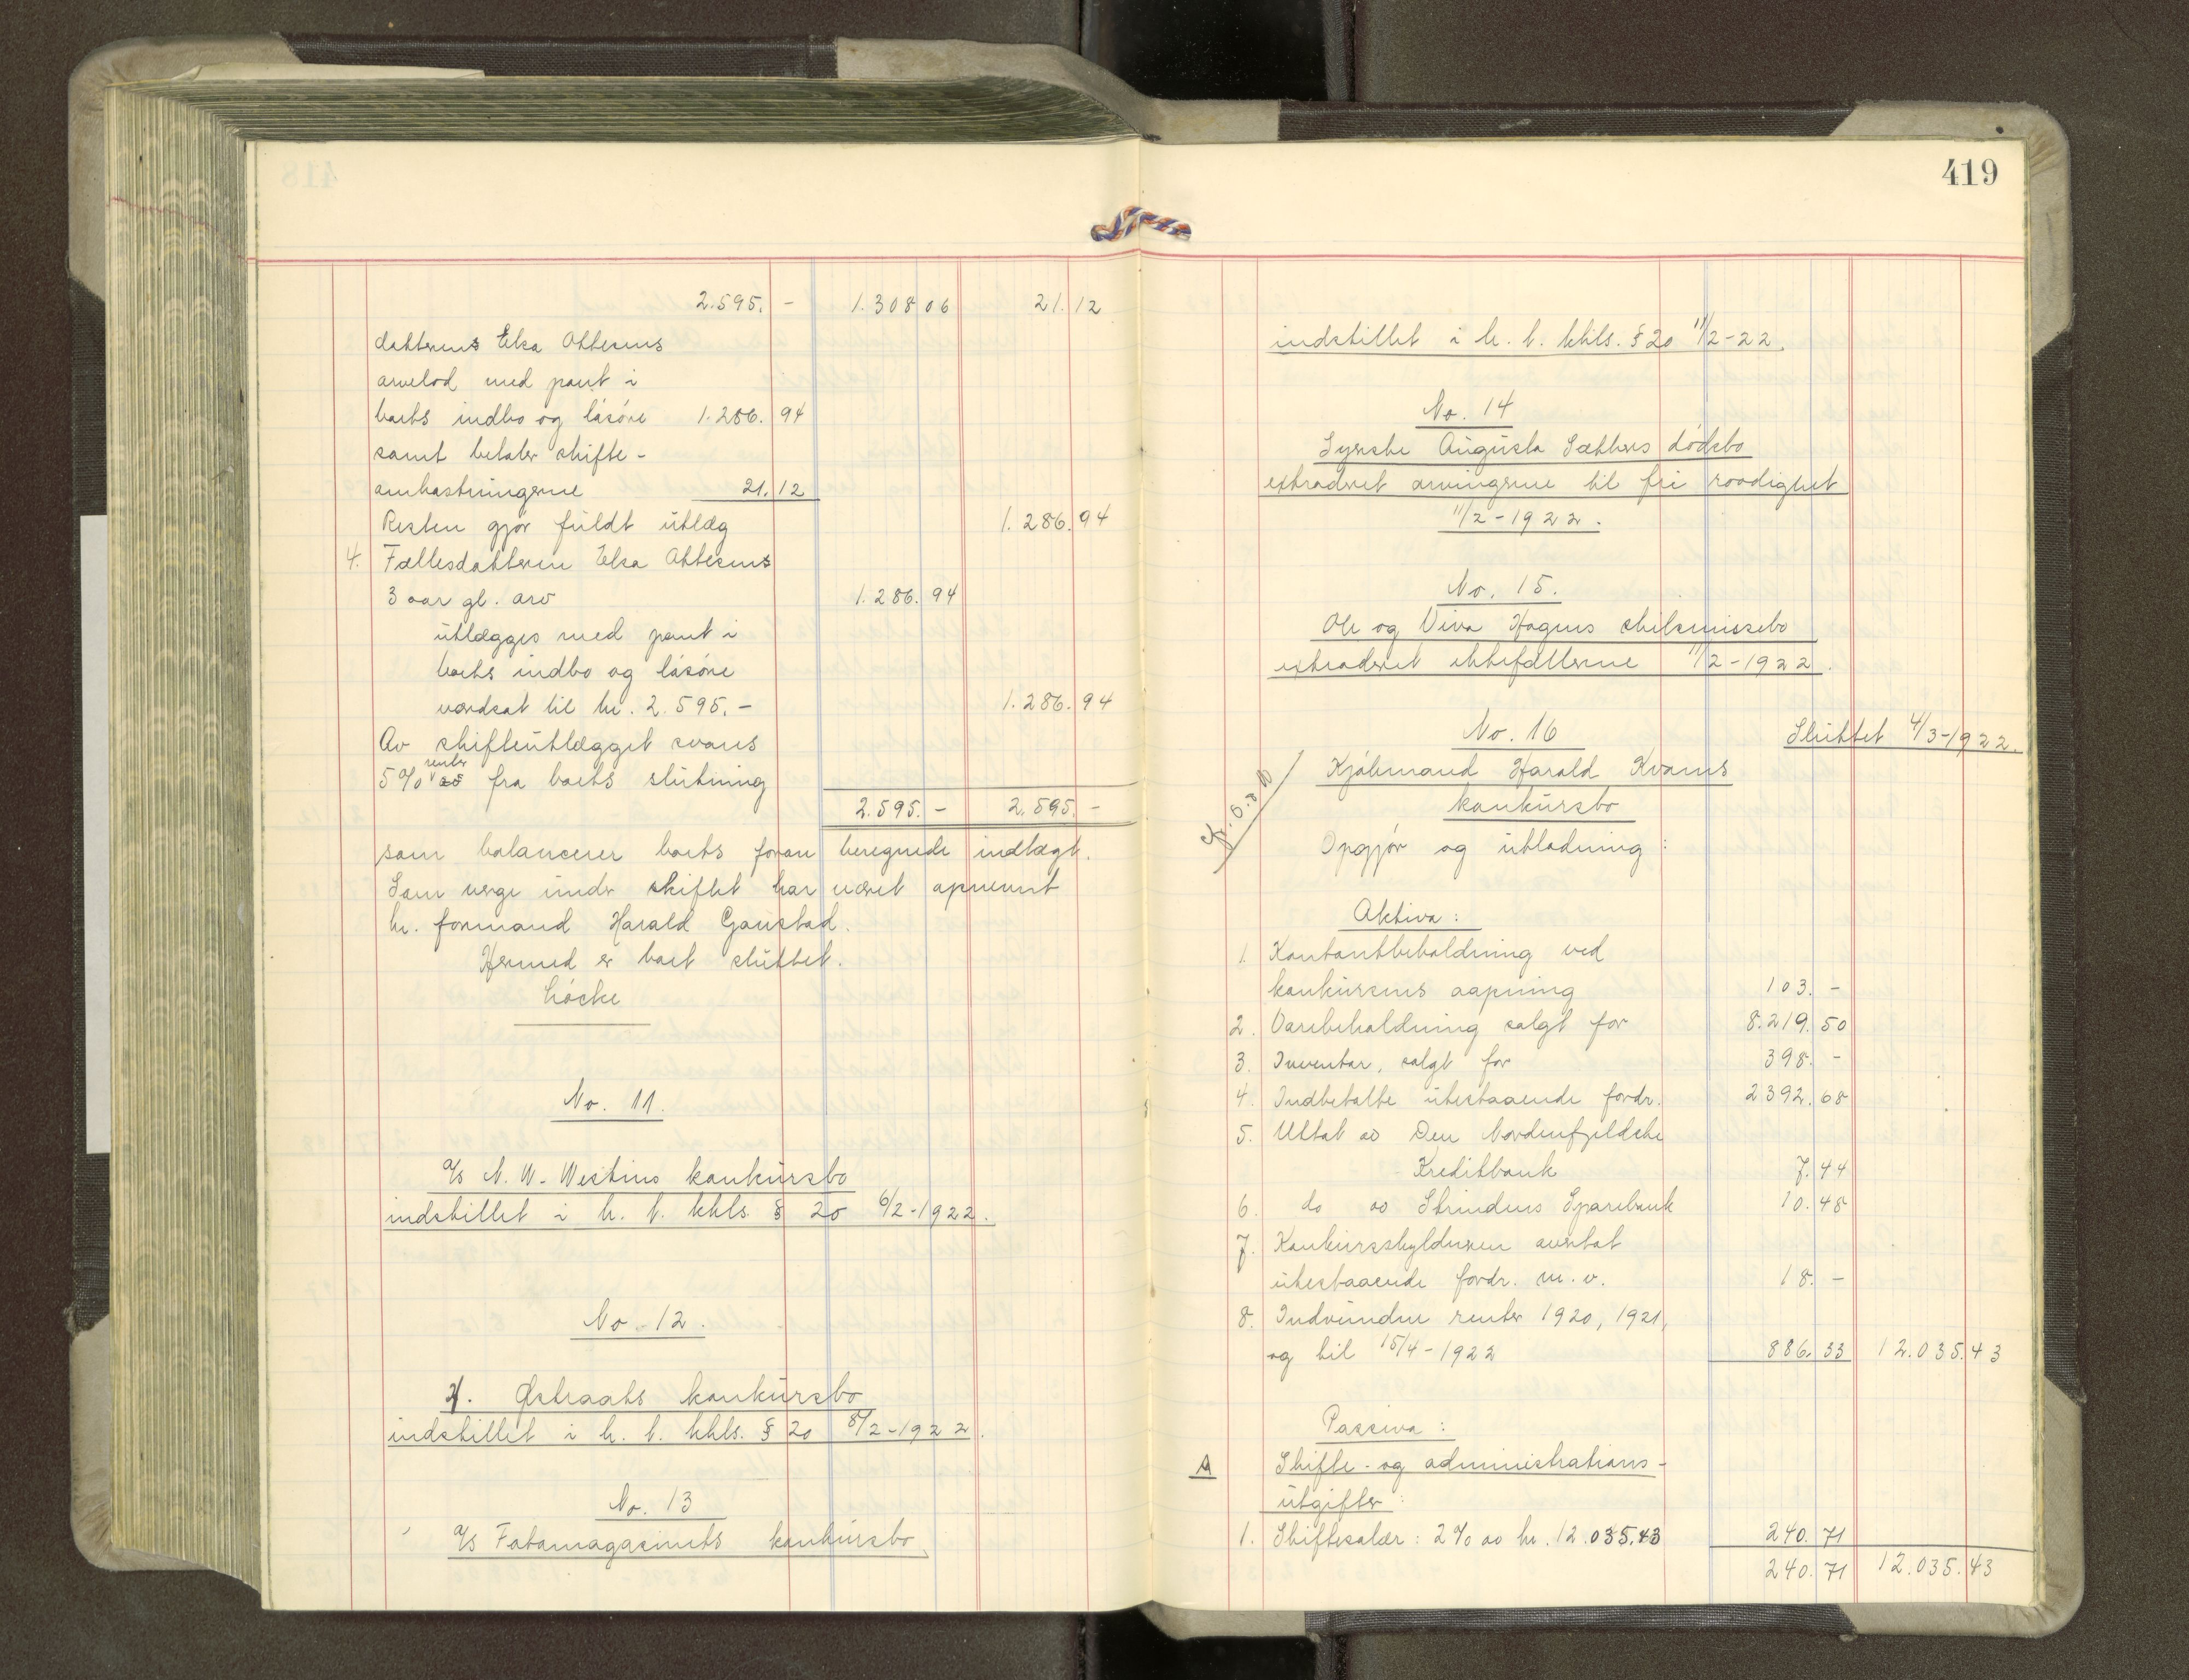 2.595. - 1.308 06 21. 12
datterens Elsa Ottesens
arvelod med pant i
boets indbo og løsøre 1.286. 94
samt betaler skifte-
omkostningerne 21. 12
Resten gjør fuldt utlæg 1.286. 94
4. Fællesdatteren Elsa Ottesens
3 aar gl. arv 1.286. 94
utlægges med pant i
boets indbo og løsøre
værdsat til kr. 2.595. - 1.286. 94
Av skifteutlægget svares
5 % renter fra boets slutning
2.595. - 2.595. -
som balancerer boets foran beregnede indtægt.
Som verge under skiftet har været opnevnt
hr. formand Harald Ganstad.
Hermed er boet sluttet.
No. 11.
A/S N. W. Westins konkursbo
indstillet i h. t. kkls. § 20 6/2-1922.
No. 12.
Østraats konkursbo
indstillet i h. t. kkls. § 20 8/2-1922.
No. 13
A/S Fotomagasinets konkursbo
419
indstillet i h. t. kkls. § 20 11/2-22.
No. 14
Syerske Augusta Sæthers dødsbo
extraderet arvingerne til fri raadighet
11/2-1922.
No. 15.
Ole og Viva Hagens skilsmissebo
extraderet ektefællerne 11/2-1922.
No. 16 Sluttet 4/3-1922.
Kjøbmand Harald Kvams
konkursbo
Opgjør og utlodning:
Aktiva:
1. Kontantbeholdning ved
konkursens aapning 103. -
2. Varebeholdning solgt for 8.219. 50
3. Inventar, solgt for 398. -
4. Indbetalte utestaaende fordr. 2392. 68
5. Uttat av Den Nordenfjeldske
Kreditbank 7. 44
6. do av Strindens Sparebank 10. 48
7. Konkursskyldneren overtat
utestaaende fordr. m. v. 18. -
8. Indvundne renter 1920, 1921,
og til 15/4-1922 886. 33 12.035. 43
Passiva:
A Skifte- og administrations-
utgifter:
1. Skiftesalær: 2 % av kr. 12.035.43 240. 71
240. 71 12.035. 43